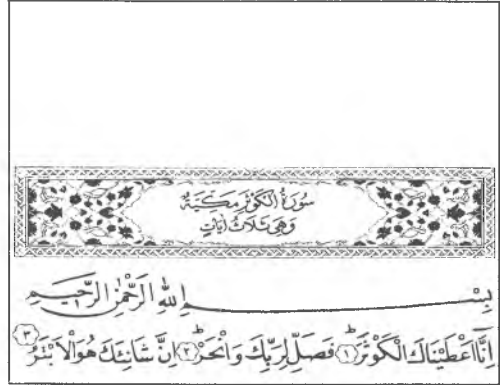 سُورَةُ الْكَوْثَرِ مَكِّيَّةٌ
وَهِيَ ثَلَاثُ اٰيَاتٍ
بِسْمِ اللّٰهِ الرَّحْمٰنِ الرَّحٖيمِ
اِنَّٓا اَعْطَيْنَاكَ الْكَوْثَرَۜ ﴿١﴾ فَصَلِّ لِرَبِّكَ وَانْحَرْۜ ﴿٢﴾ اِنَّ شَانِئَكَ هُوَ الْاَبْتَرُ ﴿٣﴾